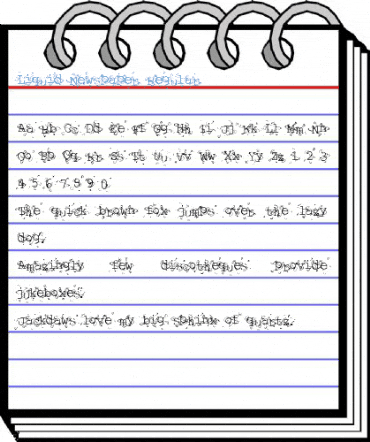 Liquid Newspaper Regular
Aa Bb Cc Dd Ee Ff Gg Hh Ii Jj Kk Ll Mm Nn
Oo Pp Qq Rr Ss Tt Uu Vv Ww Xx Yy Zz 1 2 3
4 5 6 7 8 9 0
The quick brown fox jumps over the lazy
dog.
Amazingly few discotheques provide
jukeboxes.
Jackdaws love my big sphinx of quartz.